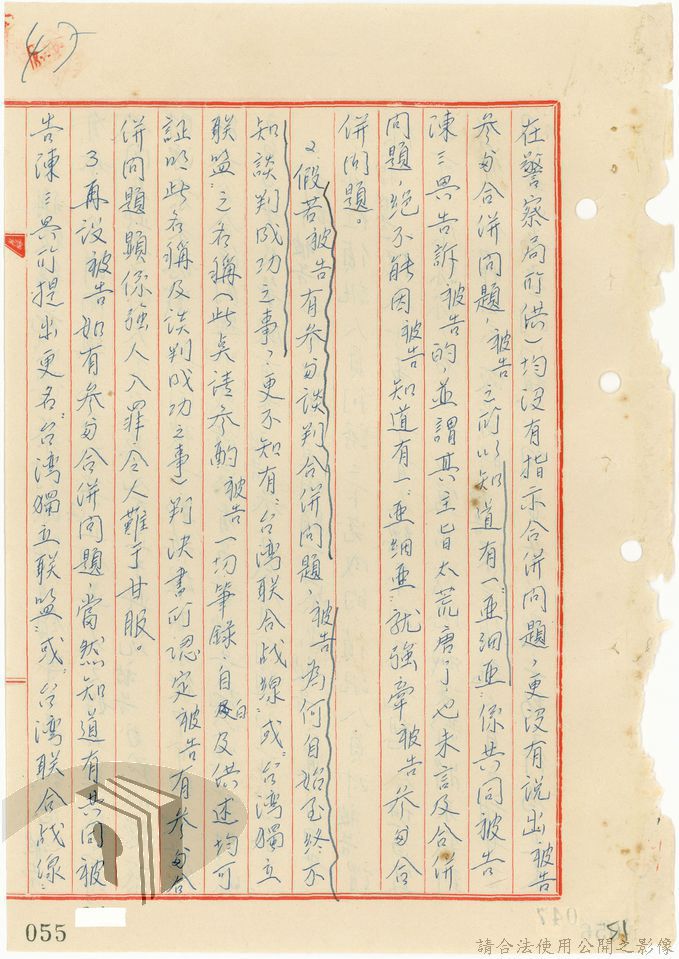 在警察局所供）均没有指示合併問題，更没有説出被告
参与合併問題，被告之所以知道有一"亜細亜"係共同被告
陳三興告訴被告的，並謂其主旨太荒唐了，也未言及合併
問題，絶不能因被告知道有一"亜細亜"就強牽被告参与合
併問題。
2假若被告有参与談判合併問題，被告為何自始至終不
知談判成功之事，更不知有"台湾联合战線"或"台湾獨立
联盟"之名稱（此点請参酌被告一切筆録、自白及供述均可
証明此名稱及談判成功之事）判決書所認定被告有参与合
併問題，顕係強人入罪，令人難于甘服。
3再設被告如有参与合併問題，當然知道有共同被
告陳三興所提出更名"台湾獨立联盟"或"台湾联合战線"
055
047
056
51
請合法使用公開之影像